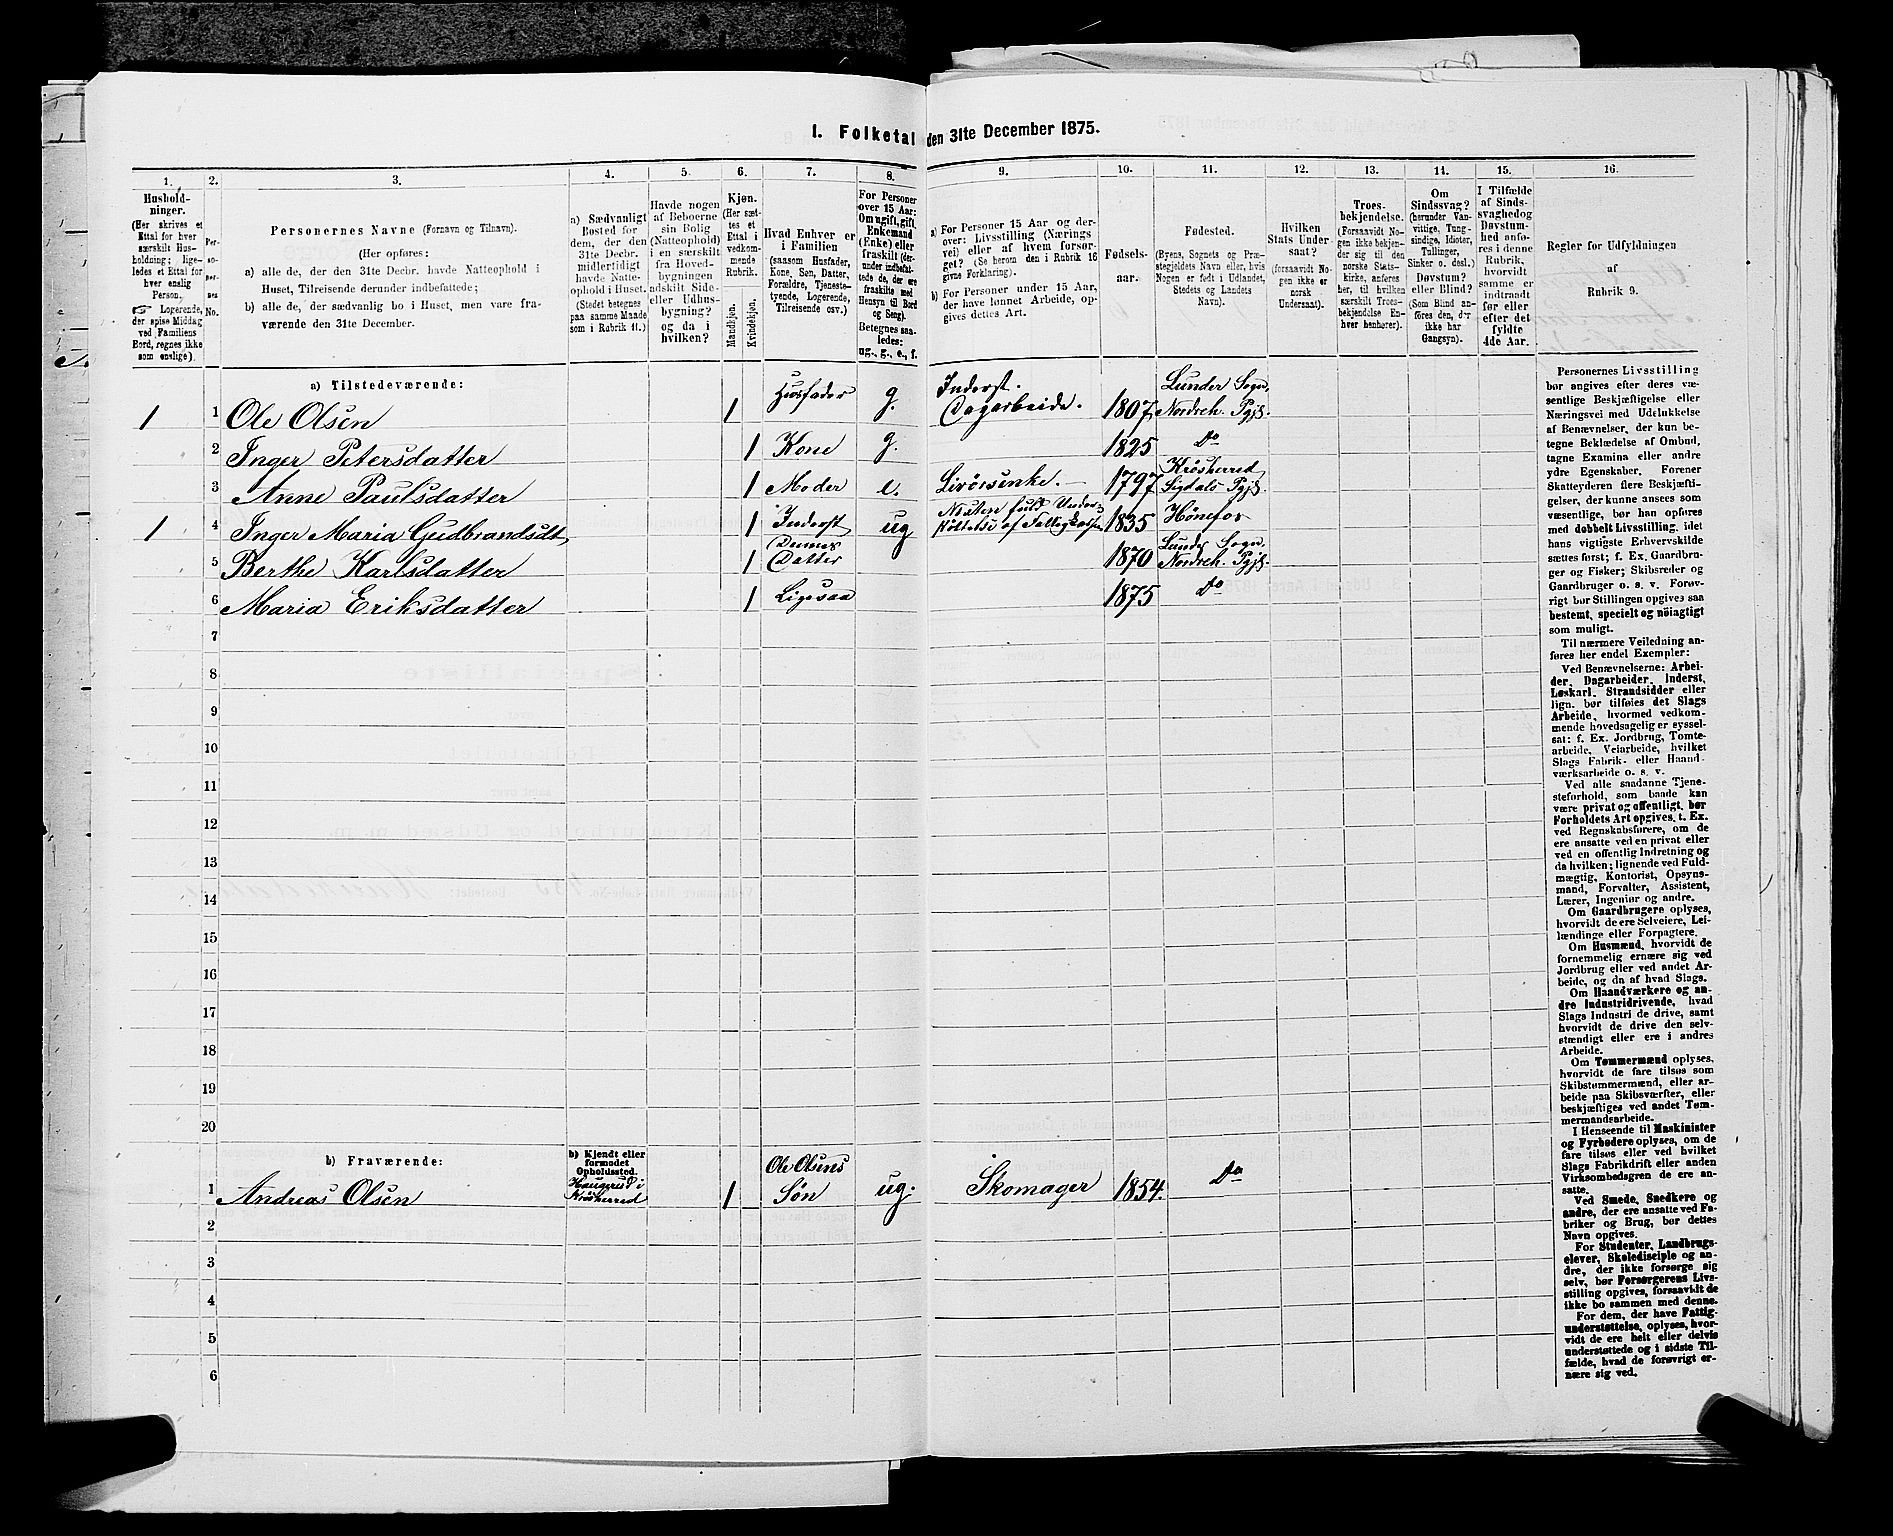 I. Folketal den 31te December 1875.
1.
2.
3.
4.
5.
6.
7.
8.
9.
10.
11.
12.
13.
14.
15.
16.
Hushold-
ninger.
(Her skrives et
Ettal for hver
særskilt Hus-
holdning; lige-
ledes et Ettal for
hver enslig
Person.
☞ Logerende,
der spise Middag
ved Familiens
Bord, regnes ikke
som enslige).
Per-
so-
ner-
nes
No.
Personernes Navne (Fornavn og Tilnavn).
(Her opføres:
a) alle de, der den 31te Decbr. havde Natteophold i
Huset, Tilreisende derunder indbefattede;
b) alle de, der sædvanlig bo i Huset, men vare fra-
værende den 31te December.
a) Sædvanligt
Bosted for
dem, der den
31te Decbr.
midlertidigt
havde Natte-
ophold i Huset.
(Stedet betegnes
paa samme Maade
som i Rubrik 11.)
Havde nogen
af Beboerne
sin Bolig
(Natteophold)
i en særskilt
fra Hoved-
bygningen
adskilt Side-
eller Udhus-
bygning?
og da i
hvilken?
Kjøn.
(Her sæt-
tes et
Ettal i
vedkom-
mende
Rubrik.
Mandkjøn.
Kvindekjøn.
Hvad Enhver er
i Familien
(saasom Husfader,
Kone, Søn, Datter,
Forældre, Tjeneste-
tyende, Logerende,
Tilreisende osv.)
For Personer
over 15 Aar:
Om ugift, gift,
Enkemand
(Enke) eller
fraskilt (der-
under indbefat-
tede de, der ere
fraskilte med
Hensyn til Bord
og Seng).
Betegnes saa-
ledes:
ug., g., e., f.
a) For Personer 15 Aar og der-
over: Livsstilling (Nærings
vei) eller af hvem forsør-
get? (Se herom den i Rubrik 16
givne Forklaring).
b) For Personer under 15 Aar,
der have lønnet Arbeide, op-
gives dettes Art.
Fødsels-
aar.
Fødested.
(Byens, Sognets og Præ-
stegjeldets Navn eller, hvis
Nogen er født i Udlandet,
Stedets og Landets
Navn).
Hvilken
Stats Under-
saat?
(forsaavidt No-
gen ikke er
norsk
Undersaat).
Troes-
bekjendelse.
(Forsaavidt No-
gen ikke bekjen-
der sig til den
norske Stats-
kirke, anføres
her, til hvilken
særskilt Troes-
bekjendelse En-
hver henhører).
Om
Sindssvag?
(herunder Van-
vittige, Tung-
sindige, Idioter,
Tullinger,
Sinker o. desl.)
Døvstum?
eller Blind?
(Som Blind an-
føres den, der
ikke har
Gangsyn).
I Tilfælde
af Sinds-
svaghedog
Døvstum-
hed anfø-
res i denne
Rubrik,
hvorvidt
samme er
indtraadt
før eller
efter det
fyldte
4de Aar.
Regler for Udfyldningen
af
Rubrik 9.
a) Tilstedeværende:
1 1 Ole Olsen 1 Husfader g. Inderst. Dagarbeide. 1807 Lunder Sogn, Nordreh. Pgjl.
2 Inger Petersdatter 1 Kone g. 1825 Do
3 Anne Paulsdatter 1 Moder e. Livørsenke. 1797 Krösherred Sigdals Pgjl.
1 4 Inger Maria Gudbrandsdt. 1 Inderst ug Nyder fuld Understöttelse af Fattigkassen 1835 Hönefos
5 Berthe Karlsdatter 1 Dennes Datter 1870 Lunder Sogn Nordreh. Pgjl.
6 Maria Eriksdatter 1 Ligesaa 1875 Do
7
8
9
10
11
12
13
14
15
16
17
18
19
20
b) Fraværende:
b) Kjendt eller
formodet
Opholdssted.
1 Andreas Olsen Haugerud i Krösherred 1 Ole Olsens Sön ug. Skomager 1854. Do
2
3
4
5
6
Personernes Livsstilling
bør angives efter deres væ-
sentlige Beskjæftigelse eller
Næringsvei med Udelukkelse
af Benævnelser, der kun be-
tegne Beklædelse af Ombud,
tagne Examina eller andre
ydre Egenskaber. Forener
Skatteyderen flere Beskjæfti-
gelser, der kunne ansees som
væsentlige, bør han opføres
med dobbelt Livsstilling, idet
hans vigtigste Erhvervskilde
sættes først; f. Ex. Gaardbru-
ger og Fisker; Skibsreder og
Gaardbruger o. s. v. Forøv-
rigt bør Stillingen opgives saa
bestemt, specielt og nøiagtigt
som muligt.
Til nærmere Veiledning an-
føres her endel Exempler:
Ved Benævnelserne: Arbei-
der, Dagarbeider, Inderst,
Løskarl, Strandsidder eller
lign. bør tilføies det Slags
Arbeide, hvormed vedkom-
mende hovedsagelig er syssel-
sat: f. Ex. Jordbrug, Tomte-
arbeide, Veiarbeide, hvilket
Slags Fabrik- eller Haand-
værksarbeide o. s. v.
Ved alle saadanne Tjene-
steforhold, som baade kan
være privat og offentligt, bør
Forholdets Art opgives, t. Ex.
ved Regnskabsførere, om de
ere ansatte ved en privat eller
ved en offentlig Indretning og
da hvilken; lignende ved Fuld-
mægtig, Kontorist, Opsyns-
mand, Forvalter, Assistent,
Lærer, Ingeniør og andre.
Om Gaardbrugere oplyses,
hvorvidt de ere Selveiere, Lei-
lændinge eller Forpagtere.
Om Husmænd, hvorvidt de
fornemmelig ernære sig ved
Jordbrug eller ved andet Ar-
beide, og da af hvad Slags.
Om Haandværkere og an-
dre Industridrivende, hvad
Slags Industri de drive, samt
hvorvidt de drive den selv-
stændigt eller ere i andres
Arbeide.
Om Tømmermænd oplyses,
hvorvidt de fare tilsøs som
Skibstømmermænd, eller ar-
beide paa Skibsværfter, eller
beskjæftiges ved andet Tøm-
mermandsarbeide.
I Henseende til Maskinister
og Fyrbødere oplyses, om de
fare tilsøs eller ved hvilket
Slags Fabrikdrift eller anden
Virksombedsgren de ere an-
satte.
Ved Smede, Snedkere og
andre, der ere ansatte ved Fa-
briker og Brug, bør dettes
Navn opgives.
For Studenter, Landbrugs-
elever, Skoledisciple og an-
dre, der ikke forsørge sig
selv, bør Forsørgerens Livs-
stilling opgives, forsaavidt de
ikke bo sammen med denne.
For dem, der have Fattig-
understøttelse, oplyses, hvor-
vidt de ere helt eller delvis
understøttede og i sidste Til-
fælde, hvad de forøvrigt er-
nære sig ved.